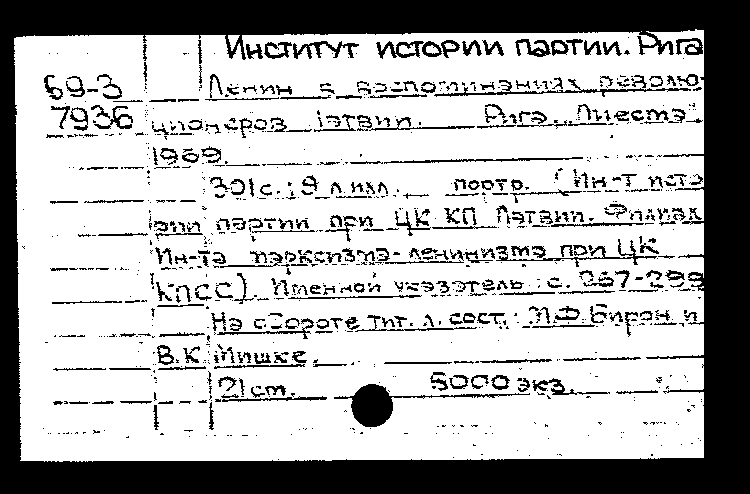 Институт истории партии. Рига
69-3 Ленин в воспоминаниях револю-
7936 ционеров Латвии. Рига, "Лиесма".
1969.
301 с.; 9 л. илл., портр. (Ин-т исто
рии партии при ЦК КП Латвии. Филиал
Ин-та марксизма-ленинизма при ЦК
КПСС). Именной указатель: с. 267-299
На обороте тит. л. сост.: М.Ф. Бирон и
В.К. Мишке.
21 см. 5000 экз.